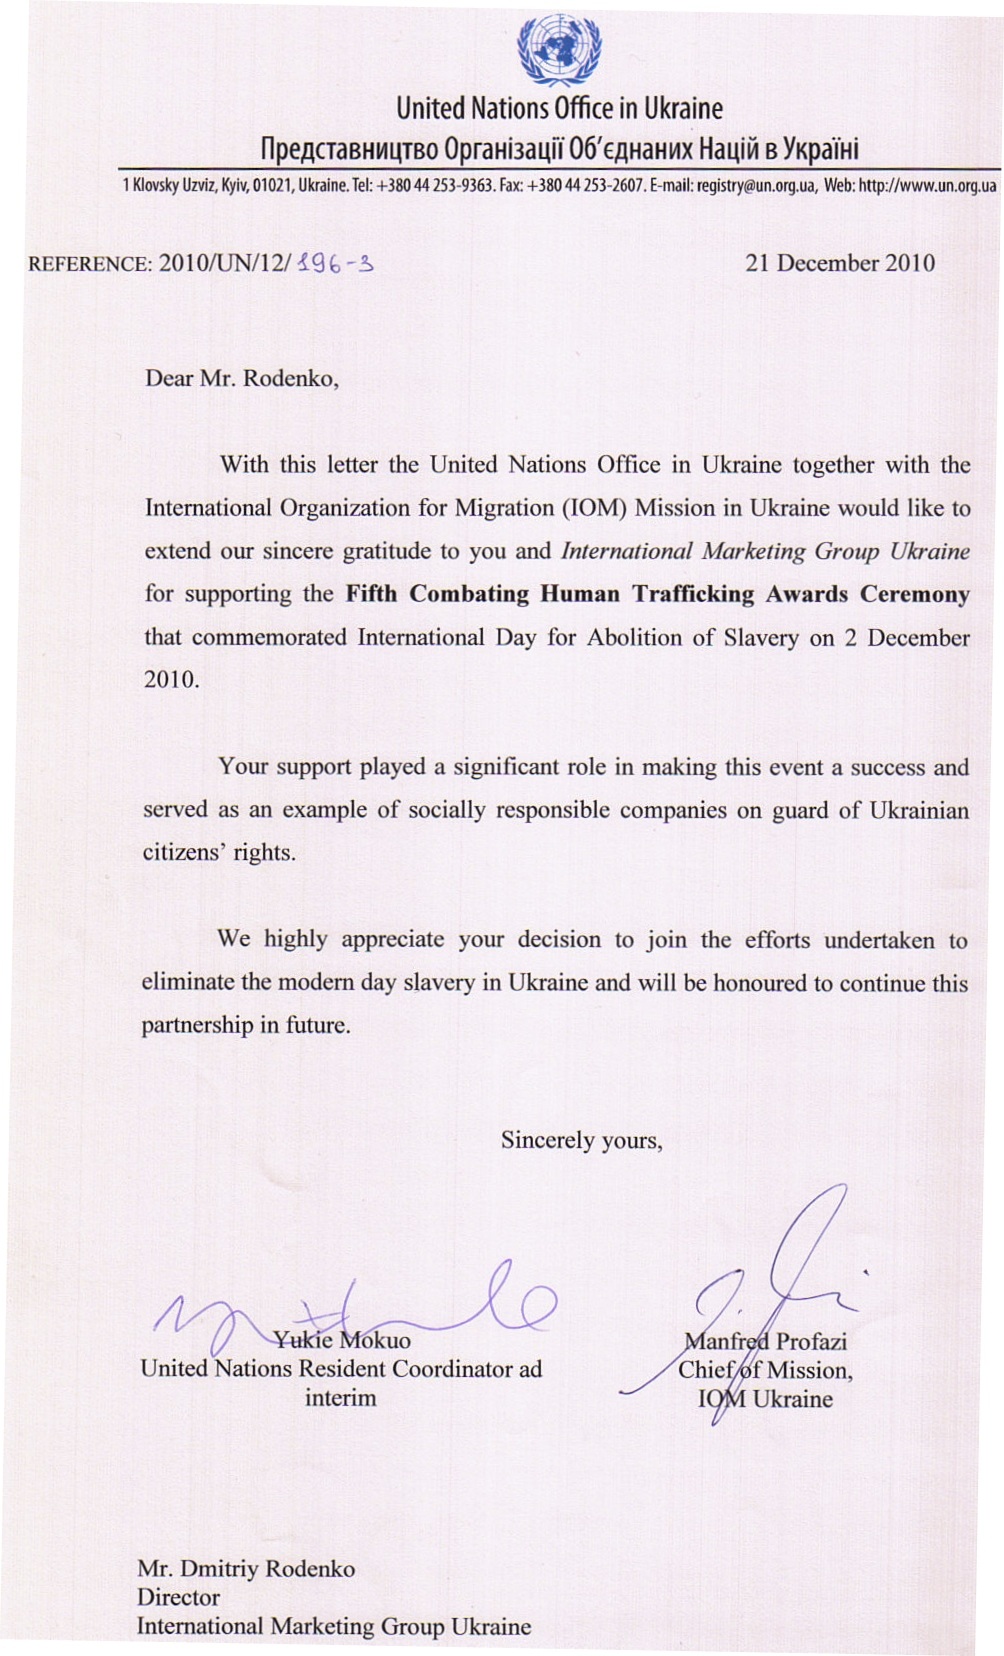 United Nations Office in Ukraine
Представництво Організації Об'єднаних Націй в Україні
1 Klovsky Uzviz, Kyiv, 01021, Ukraine. Tel: +380 44 253-9363. Fax: +380 44 253-2607. E-mail: registry@un.org.ua, Web: http://www.un.org.ua
REFERENCE: 2010/UN/12/ 196-3 21 December 2010
Dear Mr. Rodenko,
With this letter the United Nations Office in Ukraine together with the
International Organization for Migration (IOM) Mission in Ukraine would like to
extend our sincere gratitude to you and International Marketing Group Ukraine
for supporting the Fifth Combating Human Trafficking Awards Ceremony
that commemorated International Day for Abolition of Slavery on 2 December
2010.
Your support played a significant role in making this event a success and
served as an example of socially responsible companies on guard of Ukrainian
citizens’ rights.
We highly appreciate your decision to join the efforts undertaken to
eliminate the modern day slavery in Ukraine and will be honoured to continue this
partnership in future.
Sincerely yours,
Yukie Mokuo
United Nations Resident Coordinator ad
interim
Manfred Profazi
Chief of Mission,
IOM Ukraine
Mr. Dmitriy Rodenko
Director
International Marketing Group Ukraine